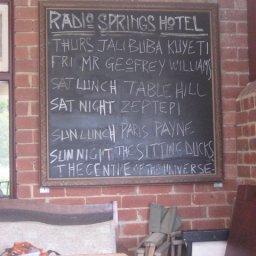 RADIO SPRINGS HOTEL
THURS JALI BUBA KUYETI
FRI MR GEOFFREY WILLIAMS
SAT LUNCH TABLE HILL
SAT NIGHT ZEPTEPI
SUN LUNCH PARIS PAYNE
SUN NIGHT THE SITTING DUCKS
THE CENTRE OF THE UNIVERSE